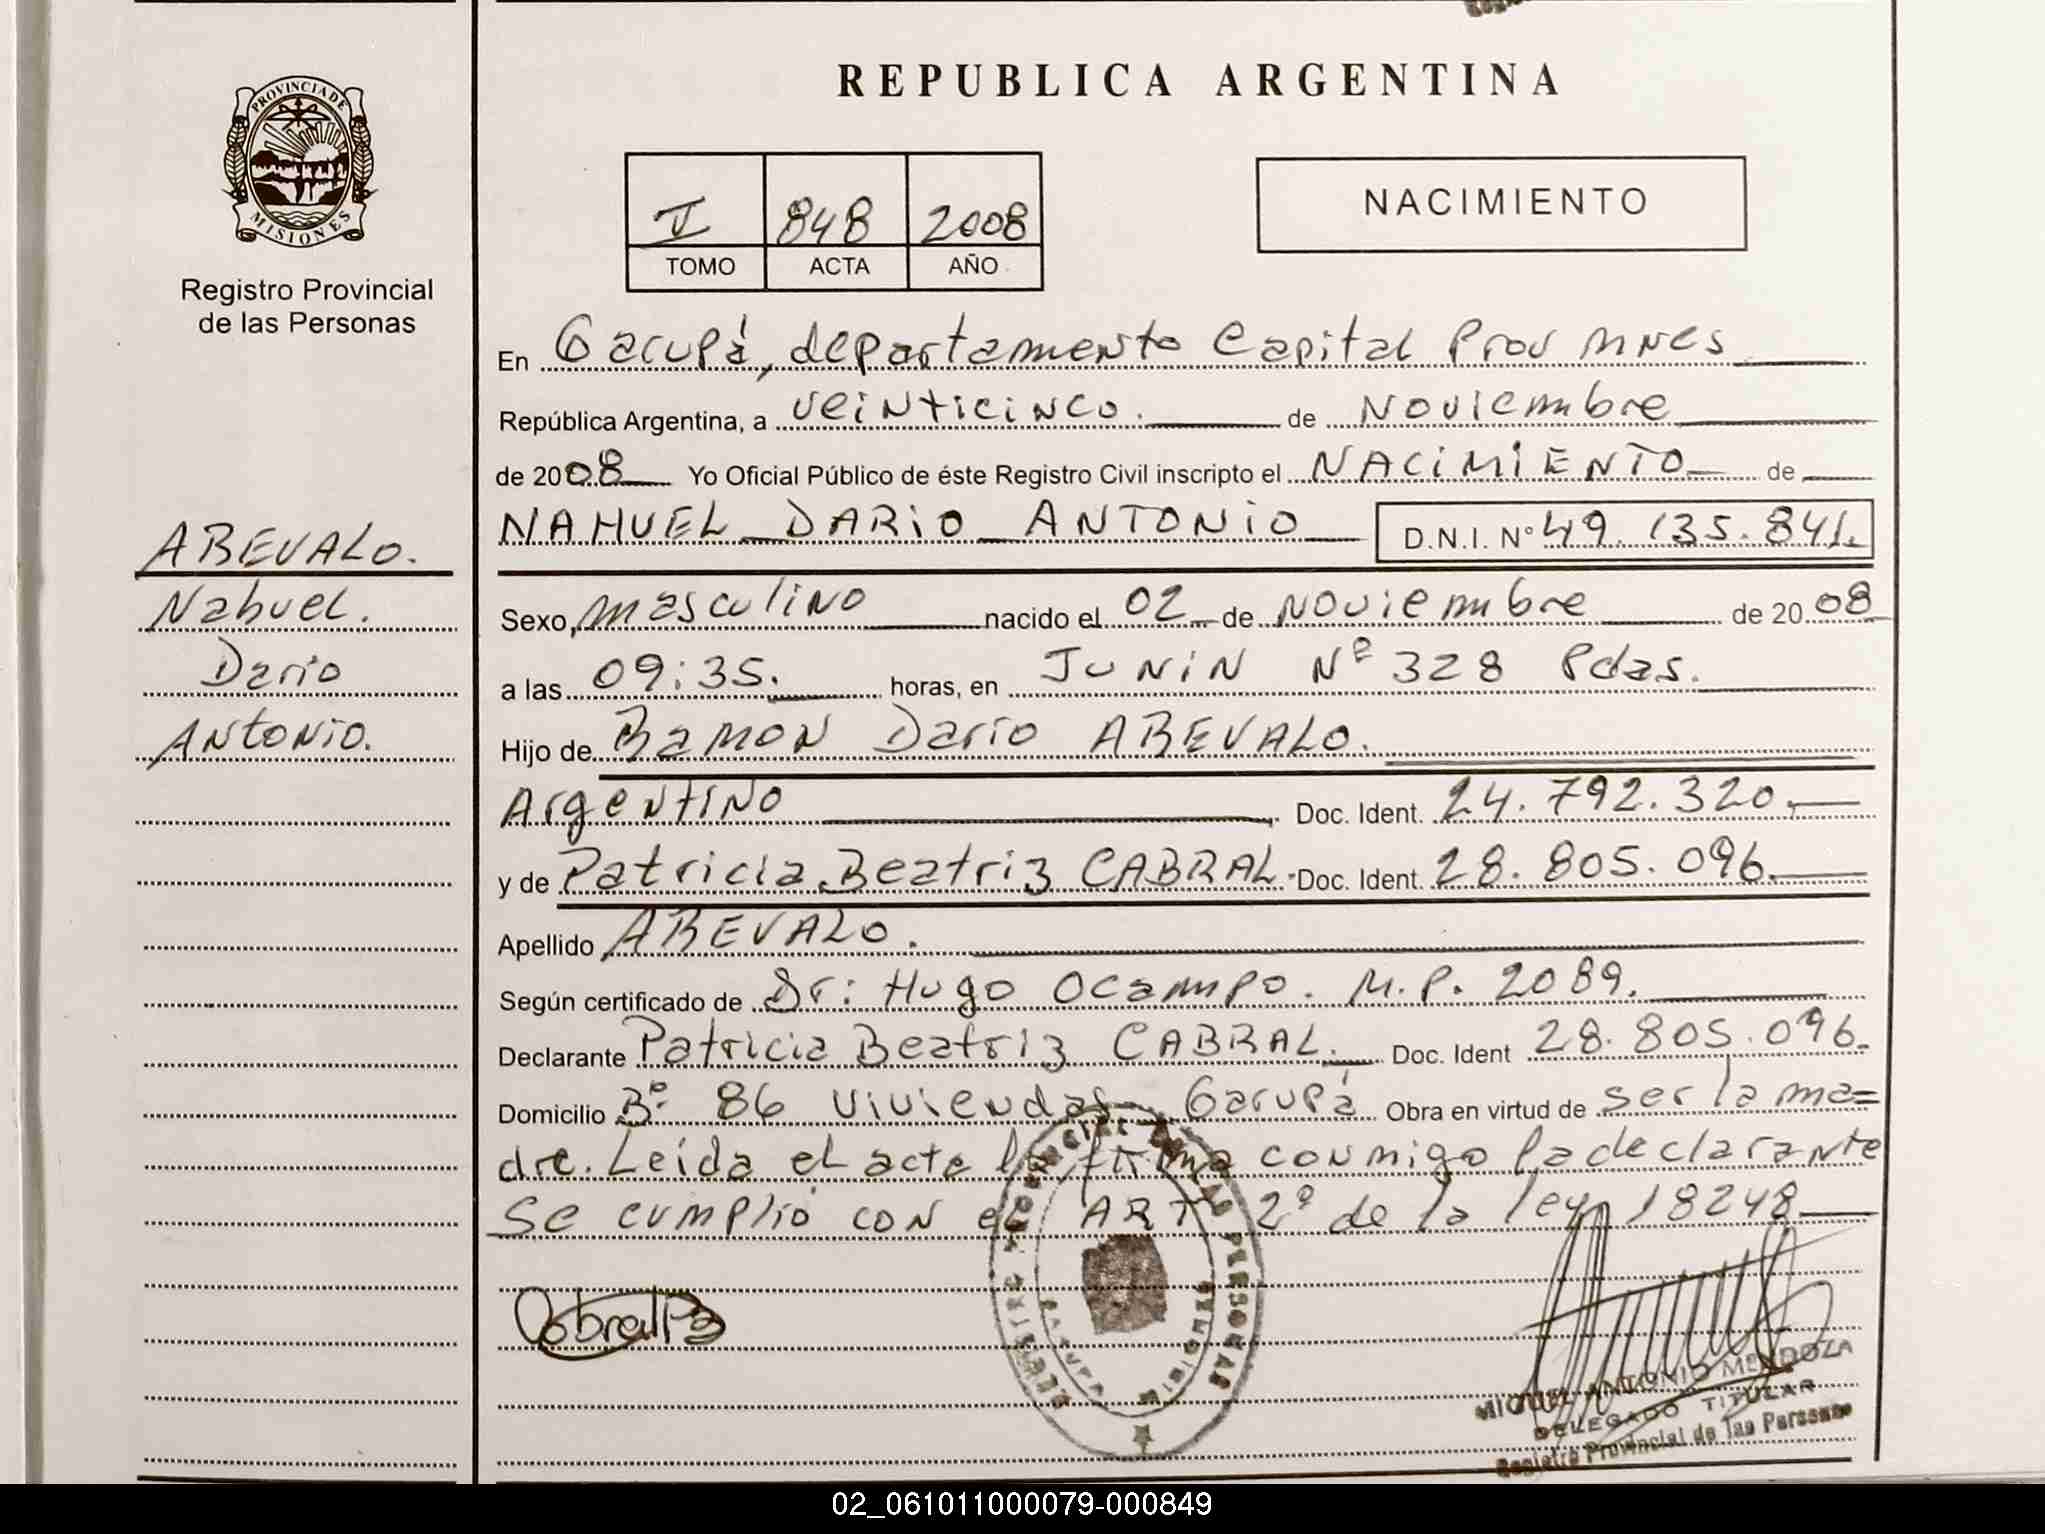 REPUBLICA ARGENTINA
PROVINCIA DE
MISIONES
Registro Provincial
de las Personas
V 848 2008
TOMO ACTA AÑO
NACIMIENTO
En Garupá, departamento Capital Prov Mnes
República Argentina, a veinticinco. de Noviembre
de 2008 Yo Oficial Público de éste Registro Civil inscripto el NACIMIENTO de
NAHUEL DARIO ANTONIO D.N.I. Nº 49.135.841.
AREVALO.
Nahuel.
Dario
Antonio.
Sexo, masculino nacido el 02 de Noviembre de 2008
a las 09:35. horas, en JUNIN Nº 328 Pdas.
Hijo de Ramon Dario AREVALO.
Argentino Doc. Ident. 24.792.320.
y de Patricia Beatriz CABRAL. Doc. Ident. 28.805.096.
Apellido AREVALO.
Según certificado de Dr: Hugo Ocampo. M.P. 2089.
Declarante Patricia Beatriz CABRAL. Doc. Ident 28.805.096.
Domicilio Bº: 86 Viviendas Garupá Obra en virtud de ser la ma=
dre. Leida el acta la firma conmigo la declarante
Se cumplió con el ART 2º de la ley 18248
Cabral P
REGISTRO PROVINCIAL DE LAS PERSONAS
GARUPA MISIONES
MIGUEL ANTONIO MENDOZA
DELEGADO TITULAR
Registro Provincial de las Personas
02_061011000079-000849